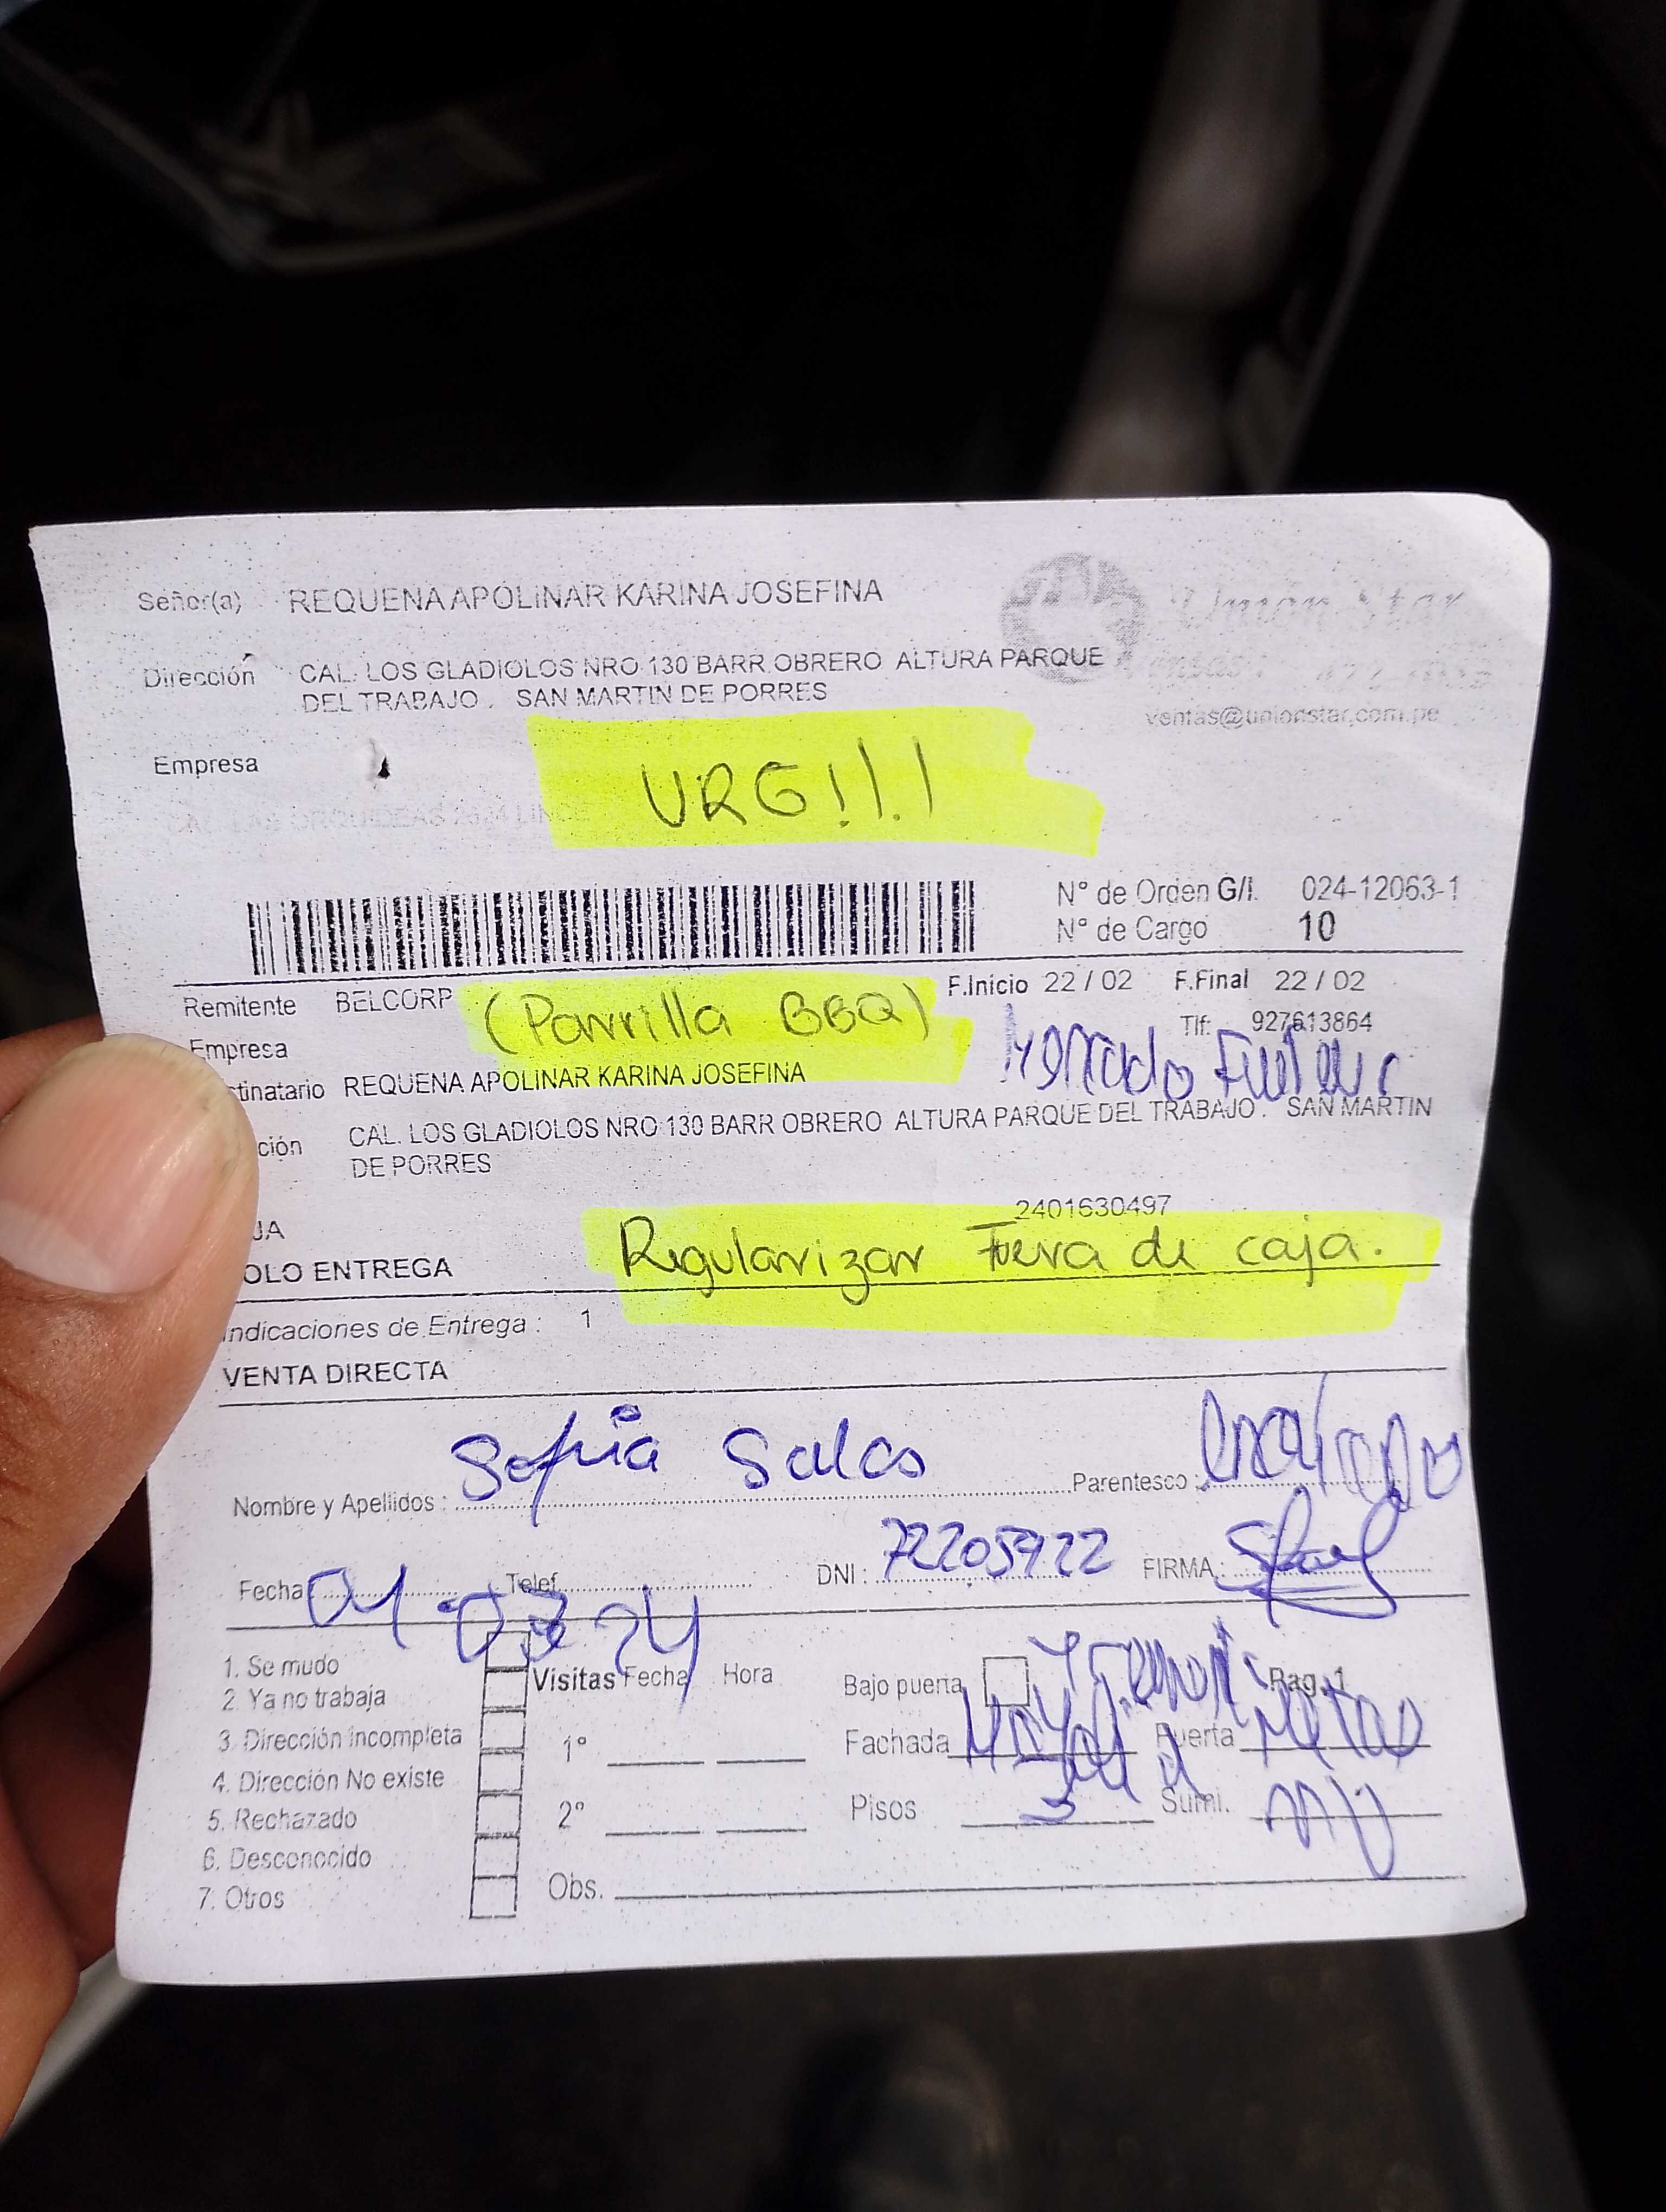 Señor(a) REQUENA APOLINAR KARINA JOSEFINA
Union Star
Dirección CAL. LOS GLADIOLOS NRO 130 BARR OBRERO ALTURA PARQUE
DEL TRABAJO . SAN MARTIN DE PORRES
ventas@unionstar.com.pe
Empresa
URG!!!
CAL. LAS ORQUIDEAS LINCE
N° de Orden G/I. 024-12063-1
N° de Cargo 10
Remitente BELCORP (Parrilla BBQ) F.Inicio 22 / 02 F.Final 22 / 02
Tlf: 927613864
Empresa
tinatario REQUENA APOLINAR KARINA JOSEFINA
ción CAL. LOS GLADIOLOS NRO 130 BARR OBRERO ALTURA PARQUE DEL TRABAJO . SAN MARTIN
DE PORRES
2401630497
JA
OLO ENTREGA Regularizar Fuera de caja.
Indicaciones de Entrega : 1
VENTA DIRECTA
Nombre y Apellidos : Sofia Salas Parentesco :
Fecha 01-03-24 Telef. DNI : 72205922 FIRMA :
1. Se mudo
2. Ya no trabaja
3. Dirección incompleta
4. Dirección No existe
5. Rechazado
6. Desconocido
7. Otros
Visitas Fecha Hora
1°
2°
Obs.
Bajo puerta Pag. 1
Fachada Puerta
Pisos 3 Sumi.